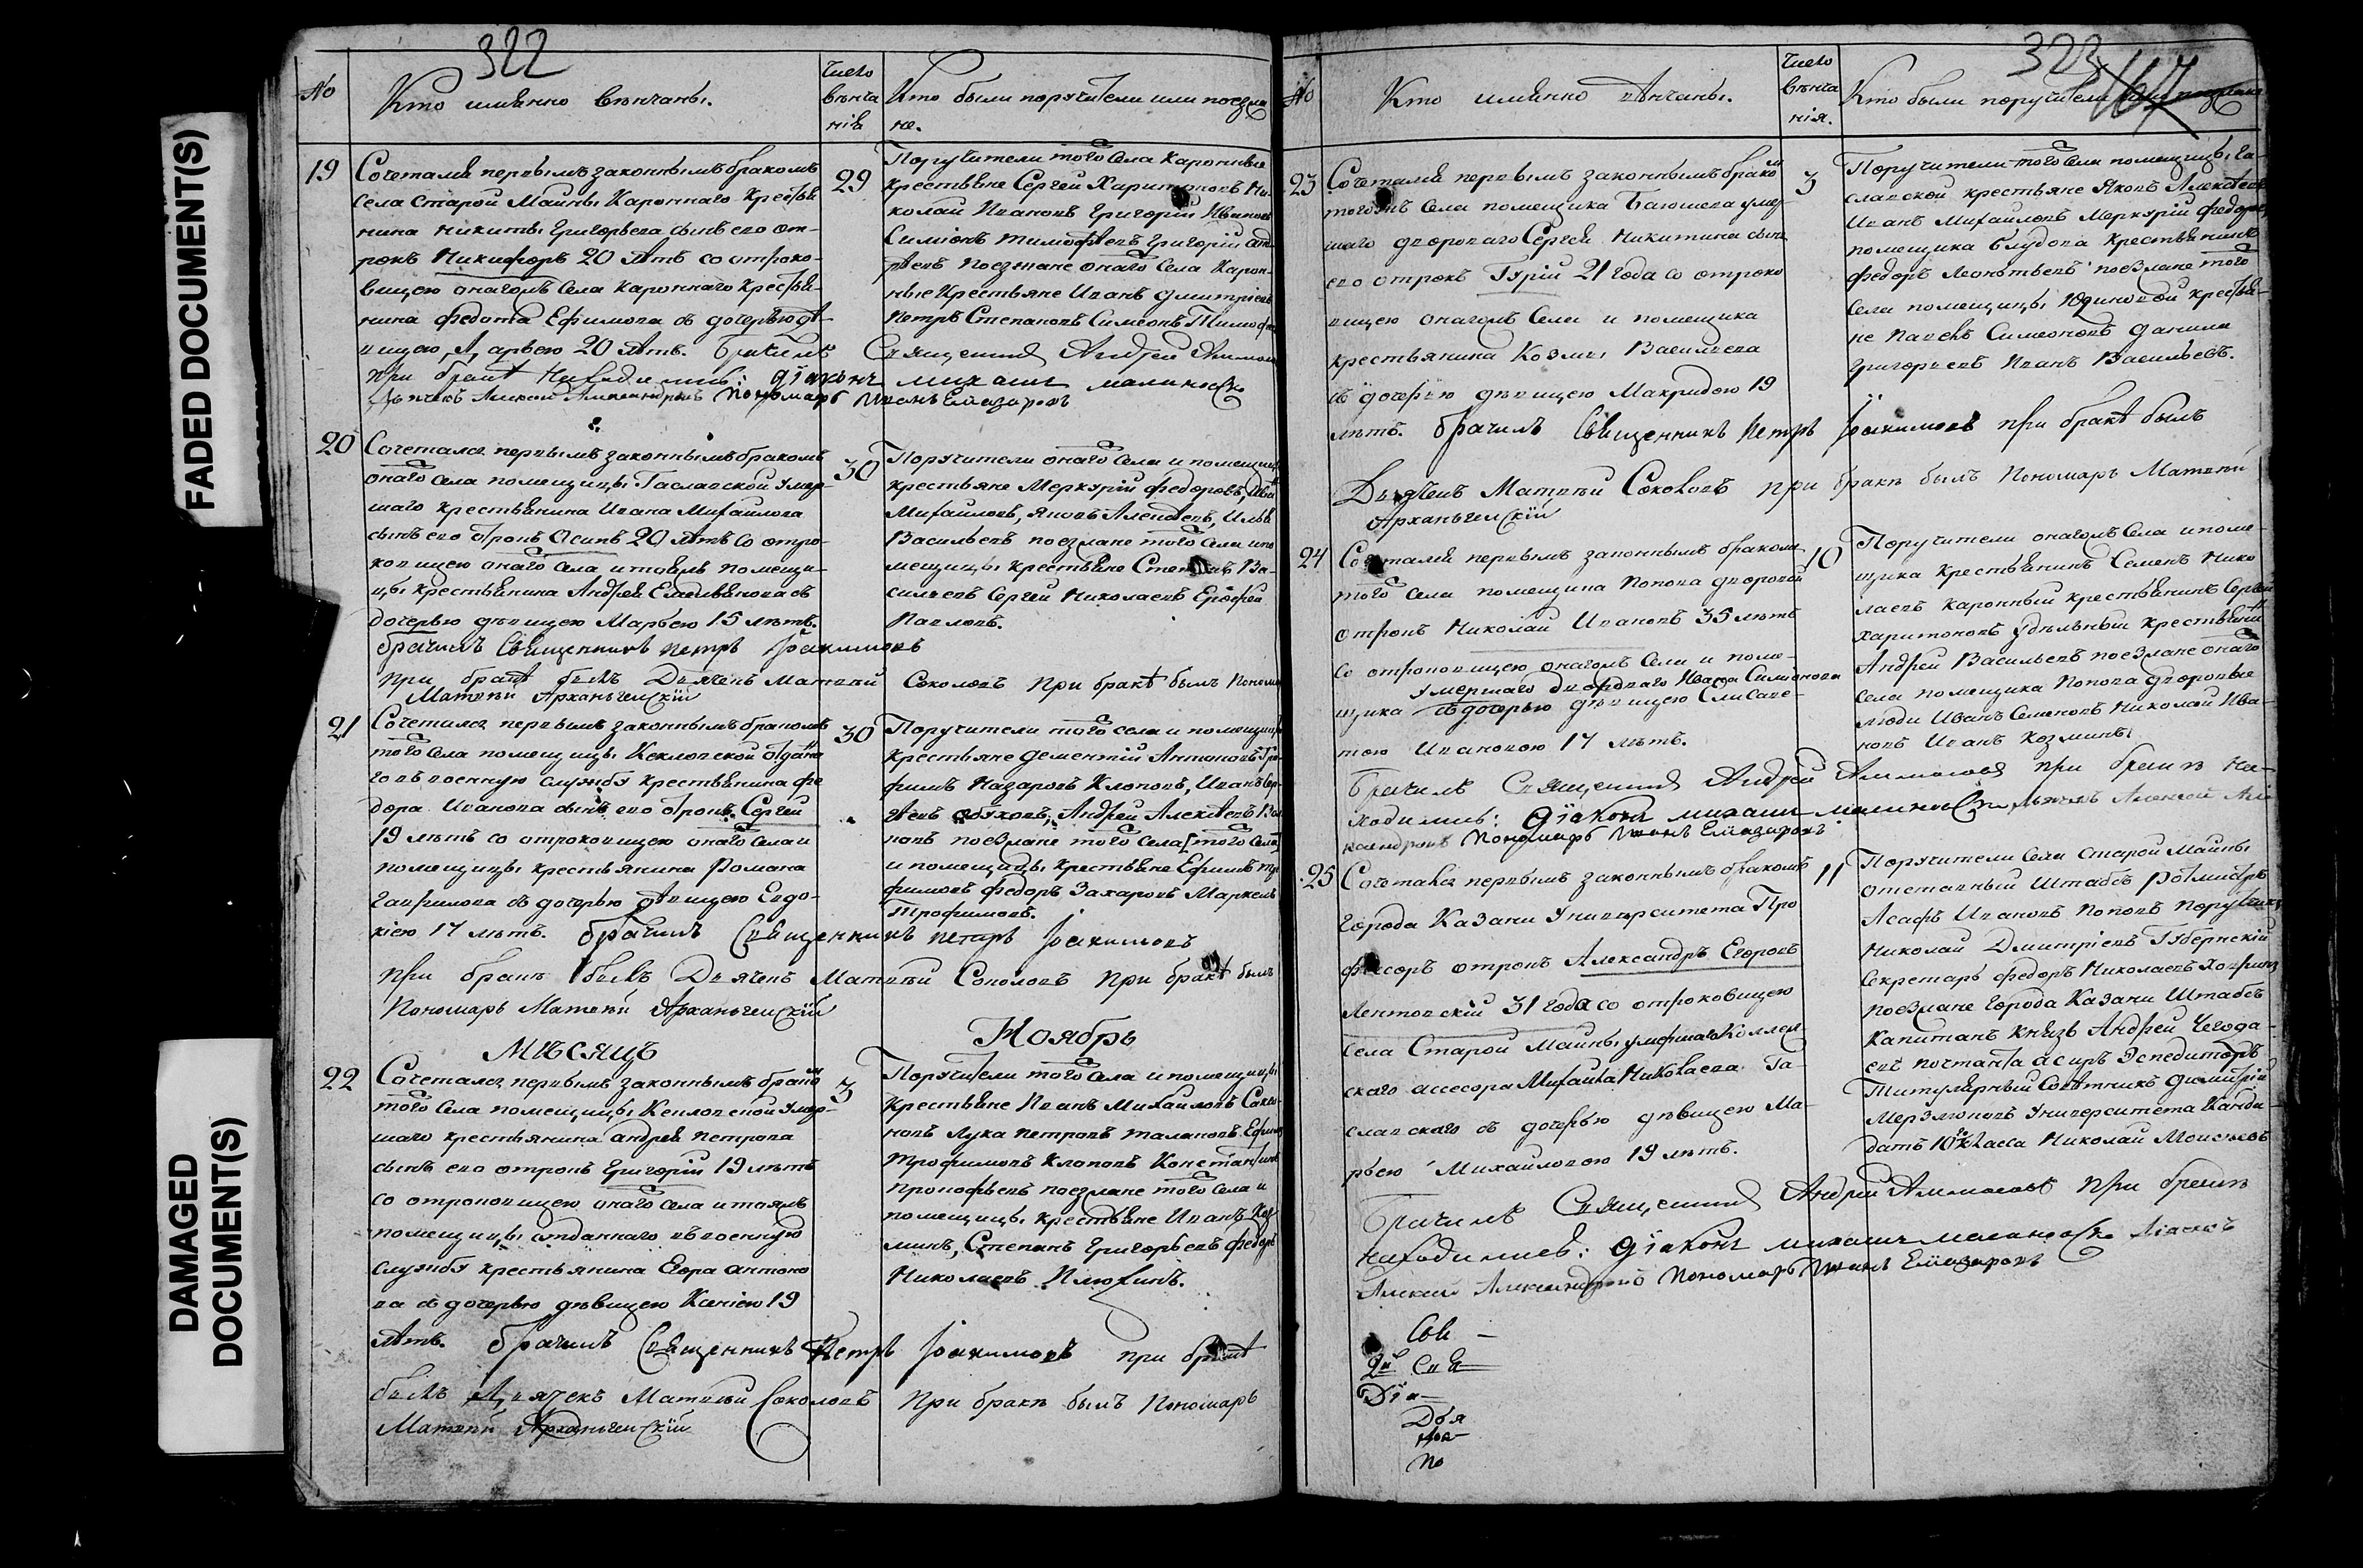 FADED DOCUMENT(S)
DAMAGED
DOCUMENT(S)
322
№
Кто имянно вѣнчаны.
Число
вѣнча
нія
Кто были поручители или поезжа
не.
19
Сочетался первымъ законнымъ бракомъ
села Старой Маины Каронного Крестья
нина Никиты Григорьева сынъ его от-
рокъ Никифоръ 20 лѣтъ со отроко-
вицею онагожъ села каронного крестья-
нина Федота Ефимова съ дочерью дѣ
вицею Дарьею 20 лѣтъ. Брачилъ Священникъ Андрей
при бракѣ находились: Діаконъ михаилъ
Дьячекъ Алексей Александровъ Пономарь Иванъ Елиазаровъ
29
Поручители того села каронные
крестьяне Сергей Харитоновъ Ни-
колай Ивановъ Григорий Ивановъ
Симіонъ Тимофѣевъ Григорій Анд
рѣевъ поезжане онаго села карон-
ные крестьяне Иванъ Дмитріевъ
Петръ Степановъ Симеонъ Тимофе
20
Сочетался первымъ законнымъ бракомъ
онаго села помещицы Гаславской умер-
шаго крестьянина Ивана Михайлова
сынъ его отрокъ Осипъ 20 лѣтъ со отро-
ковицею онаго села и тояжъ помещи-
цы крестьянина Андрея Емельянова съ
дочерью дѣвицею Марьею 15 лѣтъ.
брачилъ Священникъ Петръ Іоакимовъ
при бракѣ былъ Дьячекъ Матвей Соколовъ при бракѣ былъ Пономарь
Матвѣй Архангельскій
30
Поручители онаго села и помещицы
крестьяне Меркурій Федоровъ, Иванъ
Михайловъ, Яковъ Алексѣевъ, Илья
Васильевъ поезжане того села и по
мещицы крестьяне Степанъ Ва-
сильевъ Сергей Николаевъ Ерофей
Павловъ.
21
Сочетался первымъ законнымъ бракомъ
того села помещицы отданна
го въ военную службу крестьянина Фе
дора Иванова сынъ его отрокъ Сергей
19 лѣтъ со отроковицею онаго села и
помещицы крестьянина Романа
Гаврилова съ дочерью дѣвицею Евдо-
кіею 17 лѣтъ. брачилъ Священникъ Петръ Іоакимовъ
при бракѣ былъ Дьячекъ Матвей Соколовъ при бракѣ былъ
Пономарь Матвѣй Архангельскій
30
Поручители того села и помещицы
крестьяне Дементій Антоновъ Тро
фимъ Назаровъ Клоповъ, Иванъ Сер
гѣевъ Обуховъ, Андрей Алексѣевъ
повъ поезжане того села [того села]
и помещицы крестьяне Ефимъ Тро
фимовъ Федоръ Захаровъ Маркелъ
Трофимовъ.
Мѣсяцъ Ноябрь
22
Сочетался первымъ законнымъ бракомъ
того села помещицы умер-
шаго крестьянина Андрея Петрова
сынъ его отрокъ Григорій 19 лѣтъ
со отроковицею онаго села и тояжъ
помещицы отданнаго въ военную
службу крестьянина Егора Антоно
ва съ дочерью дѣвицею Ксеніею 19
лѣтъ. брачилъ Священникъ Петръ Іоакимовъ при бракѣ
былъ Дьячекъ Матвей Соколовъ при бракѣ былъ Пономарь
Матвѣй Архангельскій
3
Поручители того села и помещицы
крестьяне Иванъ Михайловъ
новъ Лука Петровъ Талановъ Ефимъ
Трофимовъ Клоповъ Константинъ
Прокофьевъ поезжане того села и
помещицы крестьяне Иванъ Коз
минъ, Степанъ Григорьевъ Федоръ
Николаевъ Илюхинъ.
323
167
№
Кто имянно вѣнчаны.
Число
вѣнча
нія.
Кто были поручители или поезжане
23
Сочетался первымъ законнымъ бракомъ
тогожъ села помещика умер
шаго двороваго Сергея Никитина сынъ
его отрокъ Гурій 21 года со отроко
вицею онагожъ села и помещика
крестьянина Козмы Васильева
съ дочерью дѣвицею Макридою 19
лѣтъ. брачилъ Священникъ Петръ Іоакимовъ при бракѣ былъ
Дьячекъ Матвѣй Соколовъ при бракѣ былъ Пономарь Матвѣй
Архангельскій
3
Поручители того села помещицы Га-
славской крестьяне Яковъ Алексѣевъ
Иванъ Михайловъ Меркурій Федоровъ
помещика Блудова крестьянинъ
Федоръ Леонтьевъ поезжане того
села помещицы Юдиновой крестья-
не Павелъ Симеоновъ Данила
Григорьевъ Иванъ Васильевъ.
24
Сочетался первымъ законнымъ бракомъ
того села помещика Попова дворовой
отрокъ Николай Ивановъ 35 лѣтъ
со отроковицею онагожъ села и поме-
умершаго двороваго Ивана Симіонова
щика съ дочерью дѣвицею Елисаве-
тою Ивановою 17 лѣтъ.
Брачилъ Священникъ Андрей при бракѣ на-
ходились: Діаконъ михаилъ Дьячекъ Алексей Але
ксандровъ Пономарь Иванъ Елиазаровъ
10
Поручители онагожъ села и поме-
щика крестьянинъ Семенъ Нико
лаевъ каронный крестьянинъ Сергей
Харитоновъ удѣльный крестьянинъ
Андрей Васильевъ поезжане онаго
села помещика Попова дворовые
люди Иванъ Семеновъ Николай Ива-
новъ Иванъ Козминъ.
25
Сочтался первымъ законнымъ бракомъ
Города Казани Университета Про
фесоръ отрокъ Александръ Егоровъ
Лентовскій 31 года со отроковицею
села Старой Маины умершаго Коллеж-
скаго ассесора Михаила Николаева Га-
славскаго съ дочерью дѣвицею Ма-
рьею Михайловою 19 лѣтъ.
Брачилъ Священникъ Андрей при бракѣ
находились: Діаконъ михаилъ Дьячекъ
Алексей Александровъ Пономарь Иванъ Елиазаровъ
11
Поручители села Старой Маины
отставный Штабсъ Ротмистръ
Асафъ Ивановъ Поповъ Порутчикъ
Николай Дмитріевъ Губернскій
Секретарь Федоръ Николаевъ
поезжане Города Казани Штабсъ
Капитанъ Князь Андрей Чегода-
евъ почтамта Экспедиторъ
Титулярный Советникъ Димитрій
Мерзлюковъ Университета Канди-
датъ 10го класса Николай Моисѣевъ
Свя —
2й Свя
Діа —
Дья
По